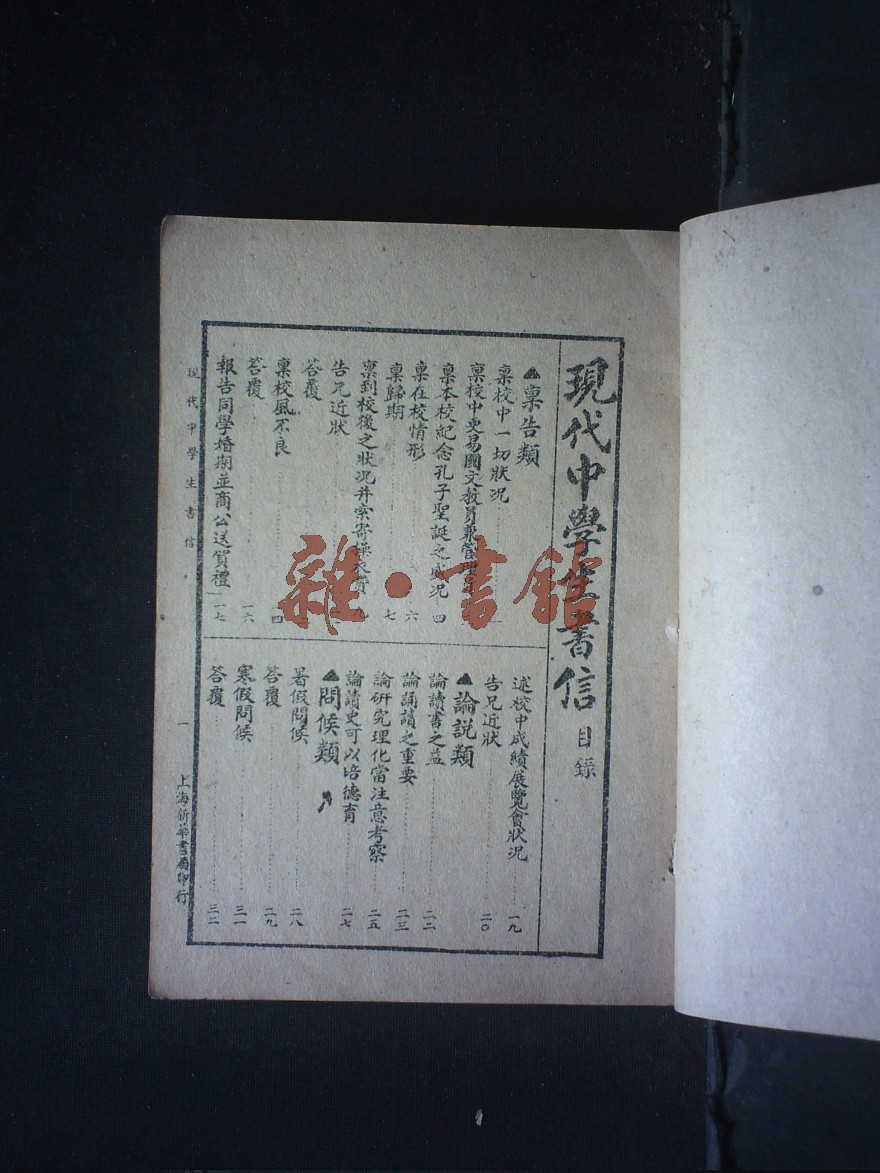 現代中學生書信目錄
▲稟告類
稟校中一切狀況 一
稟校中更易國文教員兼管理員
稟本校紀念孔子聖誕之盛況 四
稟在校情形 六
稟歸期 七
稟到校後之狀況并索寄操衣費 九
告兄近狀
答覆
稟校風不良 四
答覆 一六
報告同學婚期並商公送賀禮 一七
述校中成績展覽會狀況 一九
告兄近狀 二〇
▲論說類
論讀書之益 二二
論誦讀之重要 二三
論研究理化當注意考察 二五
論讀史可以培德育 二七
▲問候類
暑假問候 二八
答覆 二九
寒假問候 三一
答覆 三二
現代中學生書信
一
上海新華書局印行
雜·書館